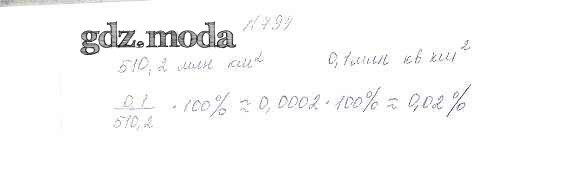 №794
gdz.moda
510,2 млн км² 0,1 млн кв км²
0,1/510,2 · 100% ≈ 0,0002 · 100% ≈ 0,02%